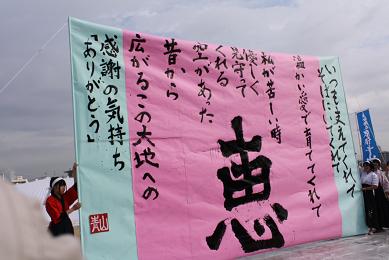 いつも支えてくれて
そばにいてくれて
温かい愛で育ててくれて
私が苦しい時
優しく
見守って
くれる
空があった
昔から
広がるこの大地への
感謝の気持ち
「ありがとう」
恵
青山